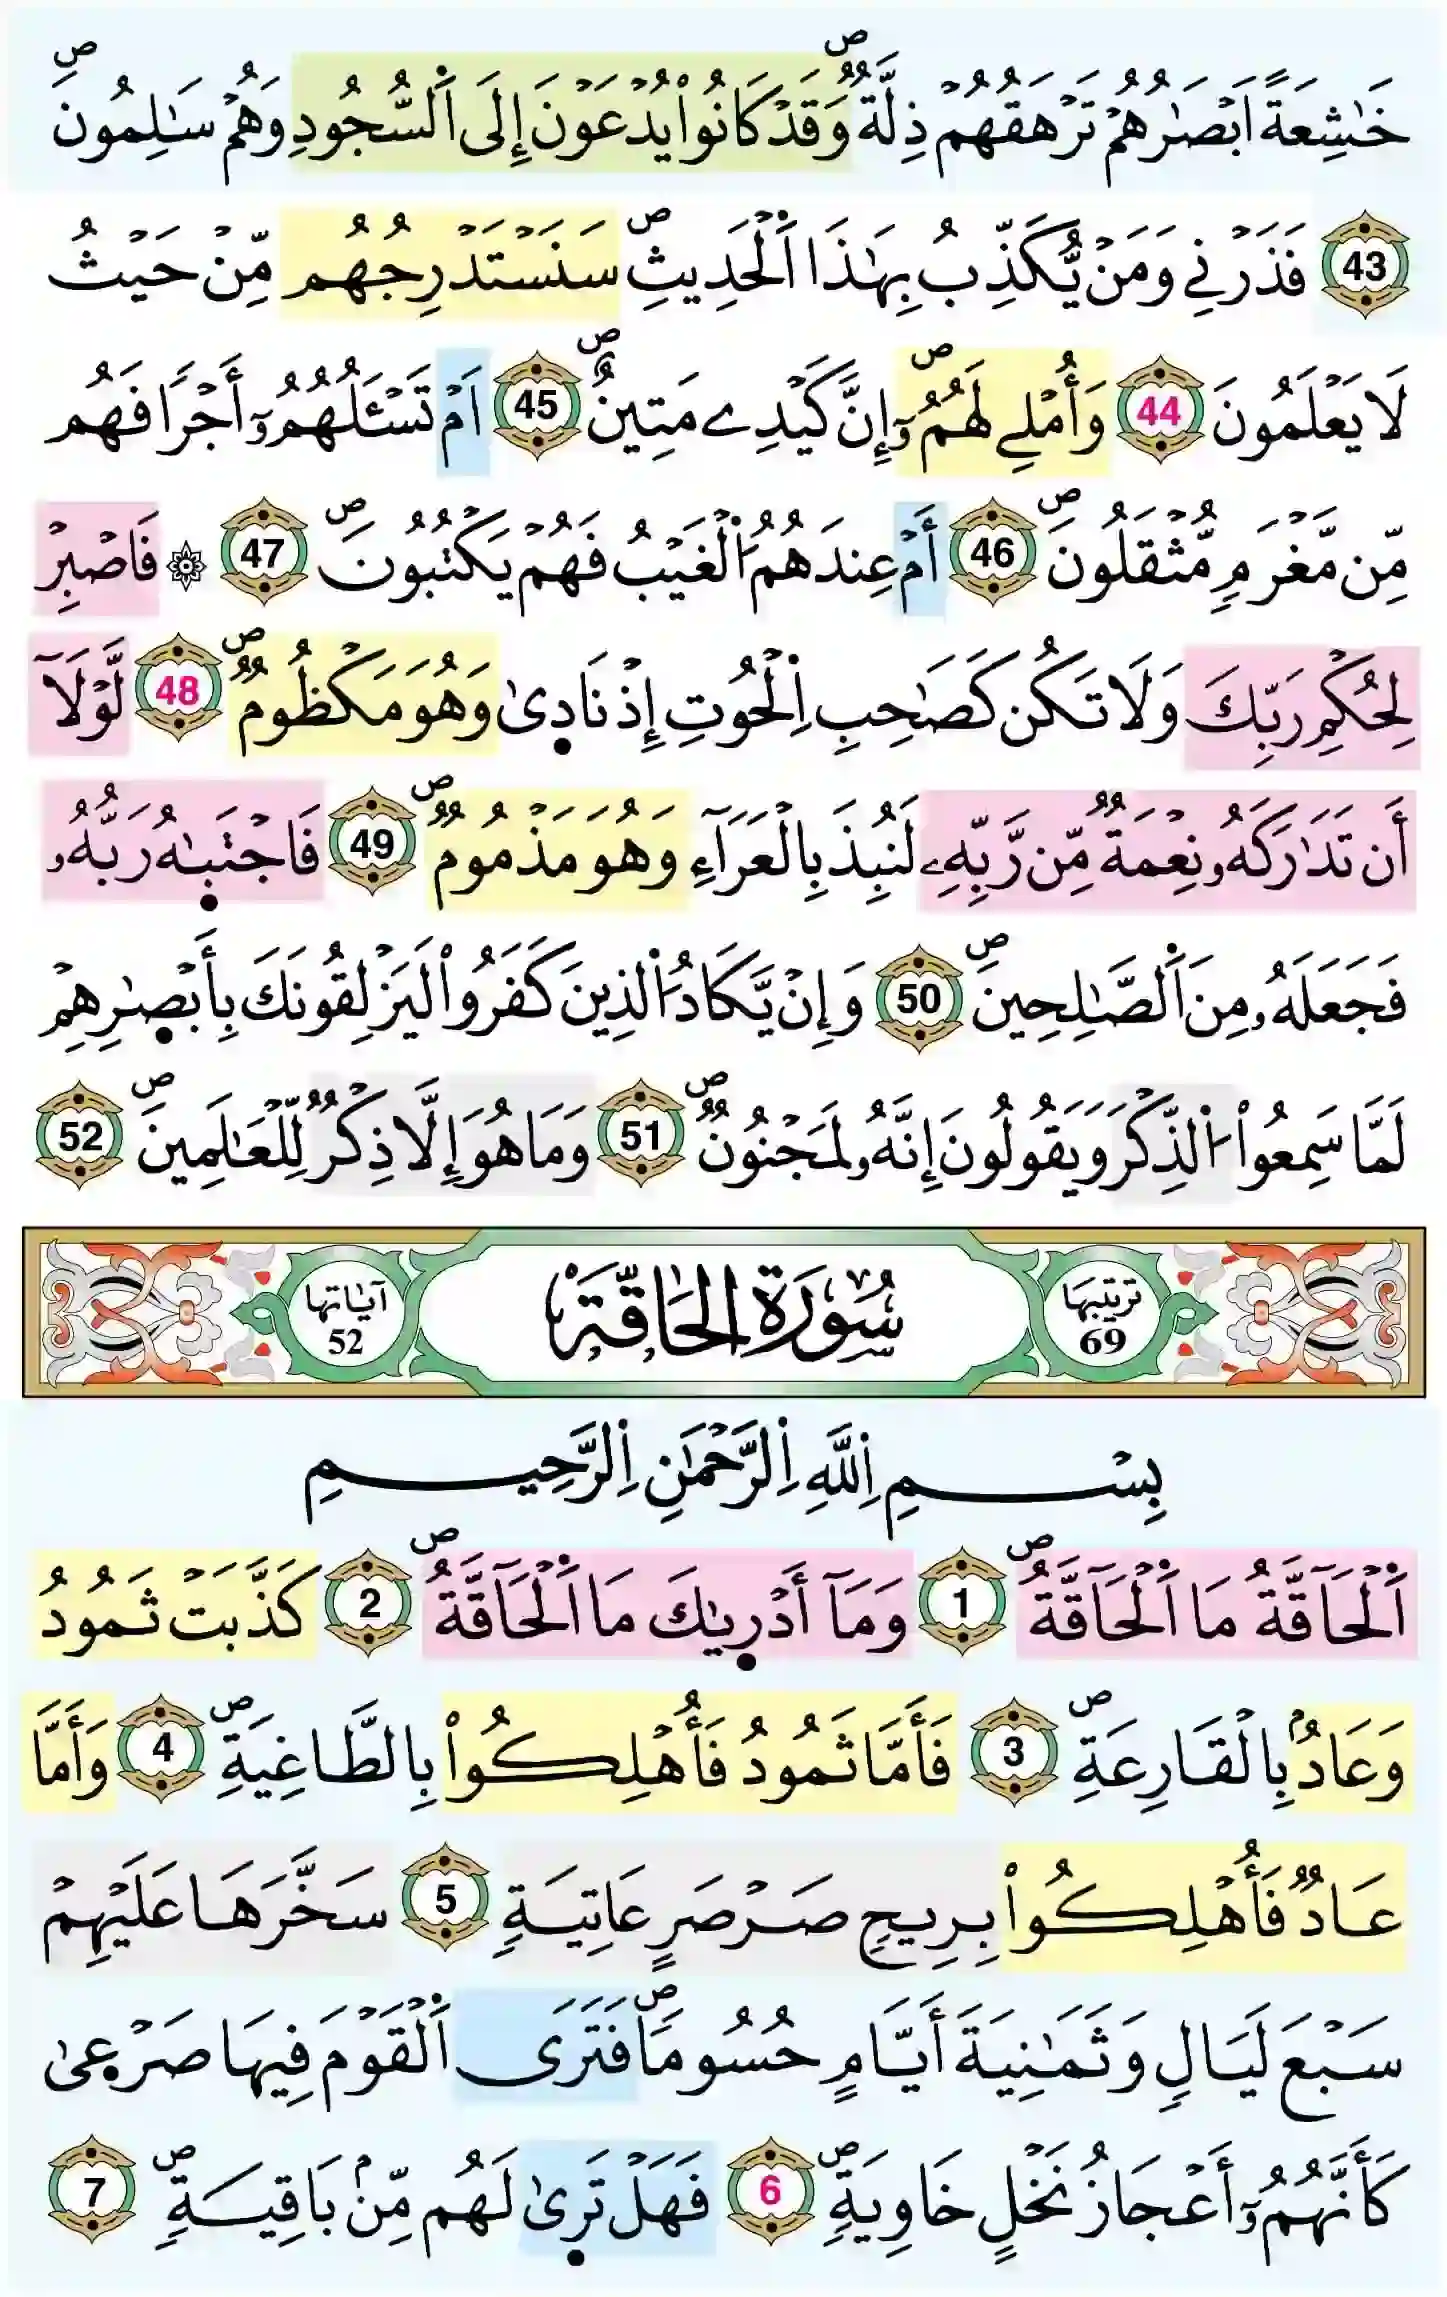 خَٰشِعَةً اَبْصَٰرُهُمْ تَرْهَقُهُمْ ذِلَّةٞۖ وَقَدْ كَانُواْ يُدْعَوْنَ إِلَى اَلسُّجُودِ وَهُمْ سَٰلِمُونَۖ
43 فَذَرْنِے وَمَنْ يُّكَذِّبُ بِهَٰذَا اَلْحَدِيثِۖ سَنَسْتَدْرِجُهُم مِّنْ حَيْثُ
لَا يَعْلَمُونَ 44 وَأُمْلِے لَهُمُۥٓۖ إِنَّ كَيْدِے مَتِينٌۖ 45 اَمْ تَسْـَٔلُهُمُۥٓ أَجْراٗ فَهُم
مِّن مَّغْرَمٖ مُّثْقَلُونَۖ 46 أَمْ عِندَهُمُ اُلْغَيْبُ فَهُمْ يَكْتُبُونَۖ 47 ۞ فَاصْبِرْ
لِحُكْمِ رَبِّكَ وَلَا تَكُن كَصَٰحِبِ اِلْحُوتِ إِذْ نَادٜىٰ وَهُوَ مَكْظُومٞۖ 48 لَّوْلَآ
أَن تَدَٰرَكَهُۥ نِعْمَةٞ مِّن رَّبِّهِۦ لَنُبِذَ بِالْعَرَآءِ وَهُوَ مَذْمُومٞۖ 49 فَاجْتَبٜىٰهُ رَبُّهُۥ
فَجَعَلَهُۥ مِنَ اَلصَّٰلِحِينَۖ 50 وَإِنْ يَّكَادُ اُلذِينَ كَفَرُواْ لَيَزْلِقُونَكَ بِأَبْصٰٜرِهِمْ
لَمَّا سَمِعُواْ اُلذِّكْرَ وَيَقُولُونَ إِنَّهُۥ لَمَجْنُونٞۖ 51 وَمَا هُوَ إِلَّا ذِكْرٞ لِّلْعَٰلَمِينَۖ 52
ترتيبها 69 سُورَةُ الحَاقَّةِ آياتها 52
بِسْمِ اِللَّهِ اِلرَّحْمَٰنِ اِلرَّحِيمِ
اَلْحَآقَّةُ مَا اَلْحَآقَّةُۖ 1 وَمَآ أَدْرٜىٰكَ مَا اَلْحَآقَّةُۖ 2 كَذَّبَتْ ثَمُودُ
وَعَادُۢ بِالْقَارِعَةِۖ 3 فَأَمَّا ثَمُودُ فَأُهْلِكُواْ بِالطَّاغِيَةِۖ 4 وَأَمَّا
عَادٞ فَأُهْلِكُواْ بِرِيحٖ صَرْصَرٍ عَاتِيَةٖ 5 سَخَّرَهَا عَلَيْهِمْ
سَبْعَ لَيَالٖ وَثَمَٰنِيَةَ أَيَّامٍ حُسُوماٗۖ فَتَرَى اَلْقَوْمَ فِيهَا صَرْعٜىٰ
كَأَنَّهُمُۥٓ أَعْجَازُ نَخْلٍ خَاوِيَةٖۖ 6 فَهَلْ تَرٜىٰ لَهُم مِّنۢ بَاقِيَةٖۖ 7